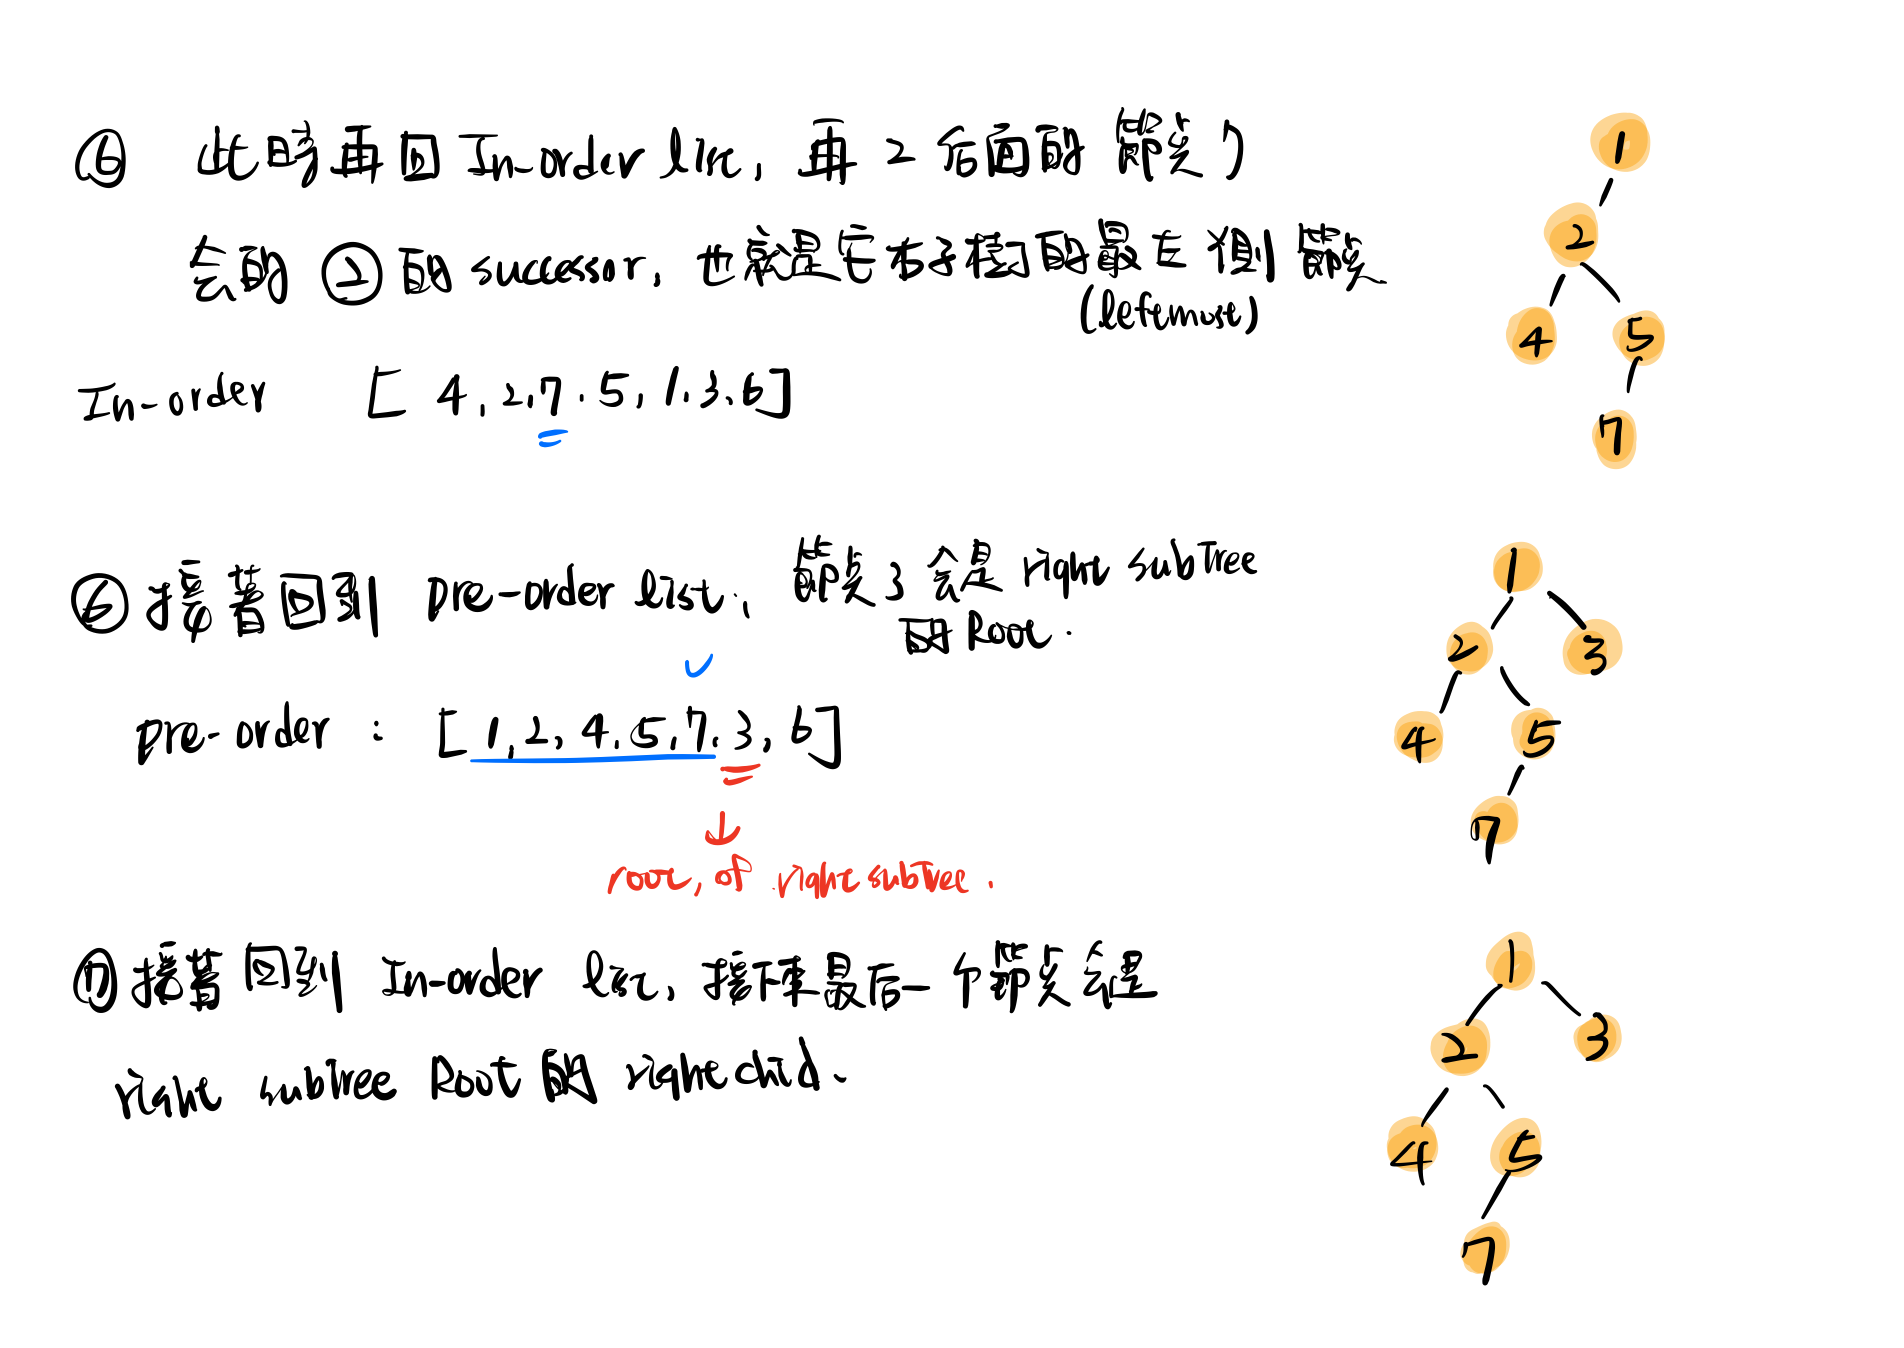 ⑥ 此時再回 In-order list, 再 2 后面的 節点 7
会的 ② 的 successor, 也就是它右子樹的最左側節点
(leftmost)
In-order [ 4, 2, 7. 5, 1. 3. 6]
⑥ 接著回到 pre-order list, 節点 3 会是 right subTree
的 Root.
pre-order : [ 1, 2, 4. 5, 7. 3, 6]
root, of right subTree.
⑦ 接著回到 In-order list, 接下來最后一个節点会是
right subTree Root 的 right chid.
1
2
4 5
7
1
2 3
4 5
7
1
2 3
4 5
7